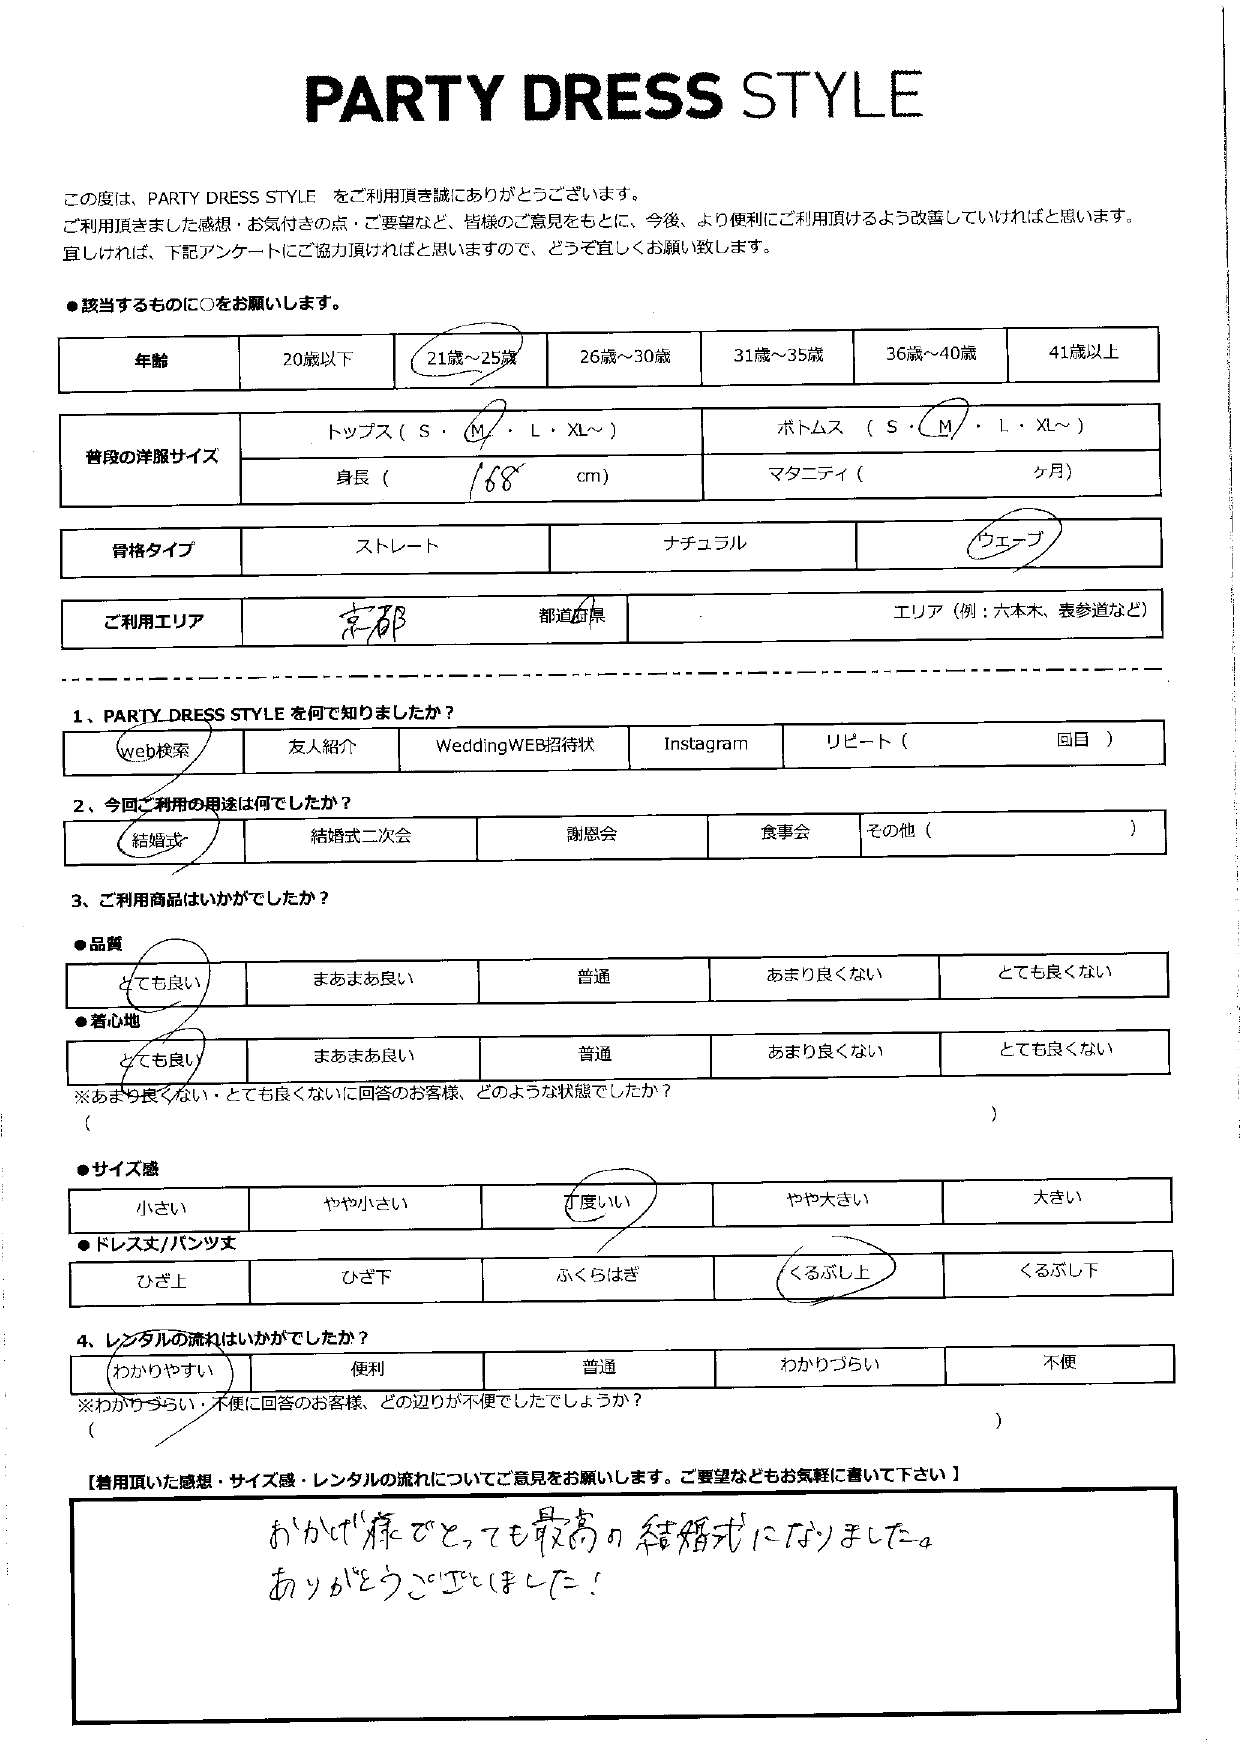 PARTY DRESS STYLE
この度は、PARTY DRESS STYLE をご利用頂き誠にありがとうございます。
ご利用頂きました感想・お気付きの点・ご要望など、皆様のご意見をもとに、今後、より便利にご利用頂けるよう改善していければと思います。
宜しければ、下記アンケートにご協力頂ければと思いますので、どうぞ宜しくお願い致します。
●該当するものに○をお願いします。
年齢 20歳以下 21歳～25歳 26歳～30歳 31歳～35歳 36歳～40歳 41歳以上
普段の洋服サイズ トップス ( S ・ M ・ L ・ XL～ ) ボトムス ( S ・ M ・ L ・ XL～ )
身長 ( 168 cm) マタニティ ( ヶ月)
骨格タイプ ストレート ナチュラル ウェーブ
ご利用エリア 京都 都道府県 エリア（例：六本木、表参道など）
1、PARTY DRESS STYLE を何で知りましたか？
web検索 友人紹介 WeddingWEB招待状 Instagram リピート ( 回目 )
2、今回ご利用の用途は何でしたか？
結婚式 結婚式二次会 謝恩会 食事会 その他 ( )
3、ご利用商品はいかがでしたか？
●品質
とても良い まあまあ良い 普通 あまり良くない とても良くない
●着心地
とても良い まあまあ良い 普通 あまり良くない とても良くない
※あまり良くない・とても良くないに回答のお客様、どのような状態でしたか？
( )
●サイズ感
小さい やや小さい 丁度いい やや大きい 大きい
●ドレス丈/パンツ丈
ひざ上 ひざ下 ふくらはぎ くるぶし上 くるぶし下
4、レンタルの流れはいかがでしたか？
わかりやすい 便利 普通 わかりづらい 不便
※わかりづらい・不便に回答のお客様、どの辺りが不便でしたでしょうか？
( )
【着用頂いた感想・サイズ感・レンタルの流れについてご意見をお願いします。ご要望などもお気軽に書いて下さい 】
おかげ様でとっても最高の結婚式になりました。
ありがとうございました！